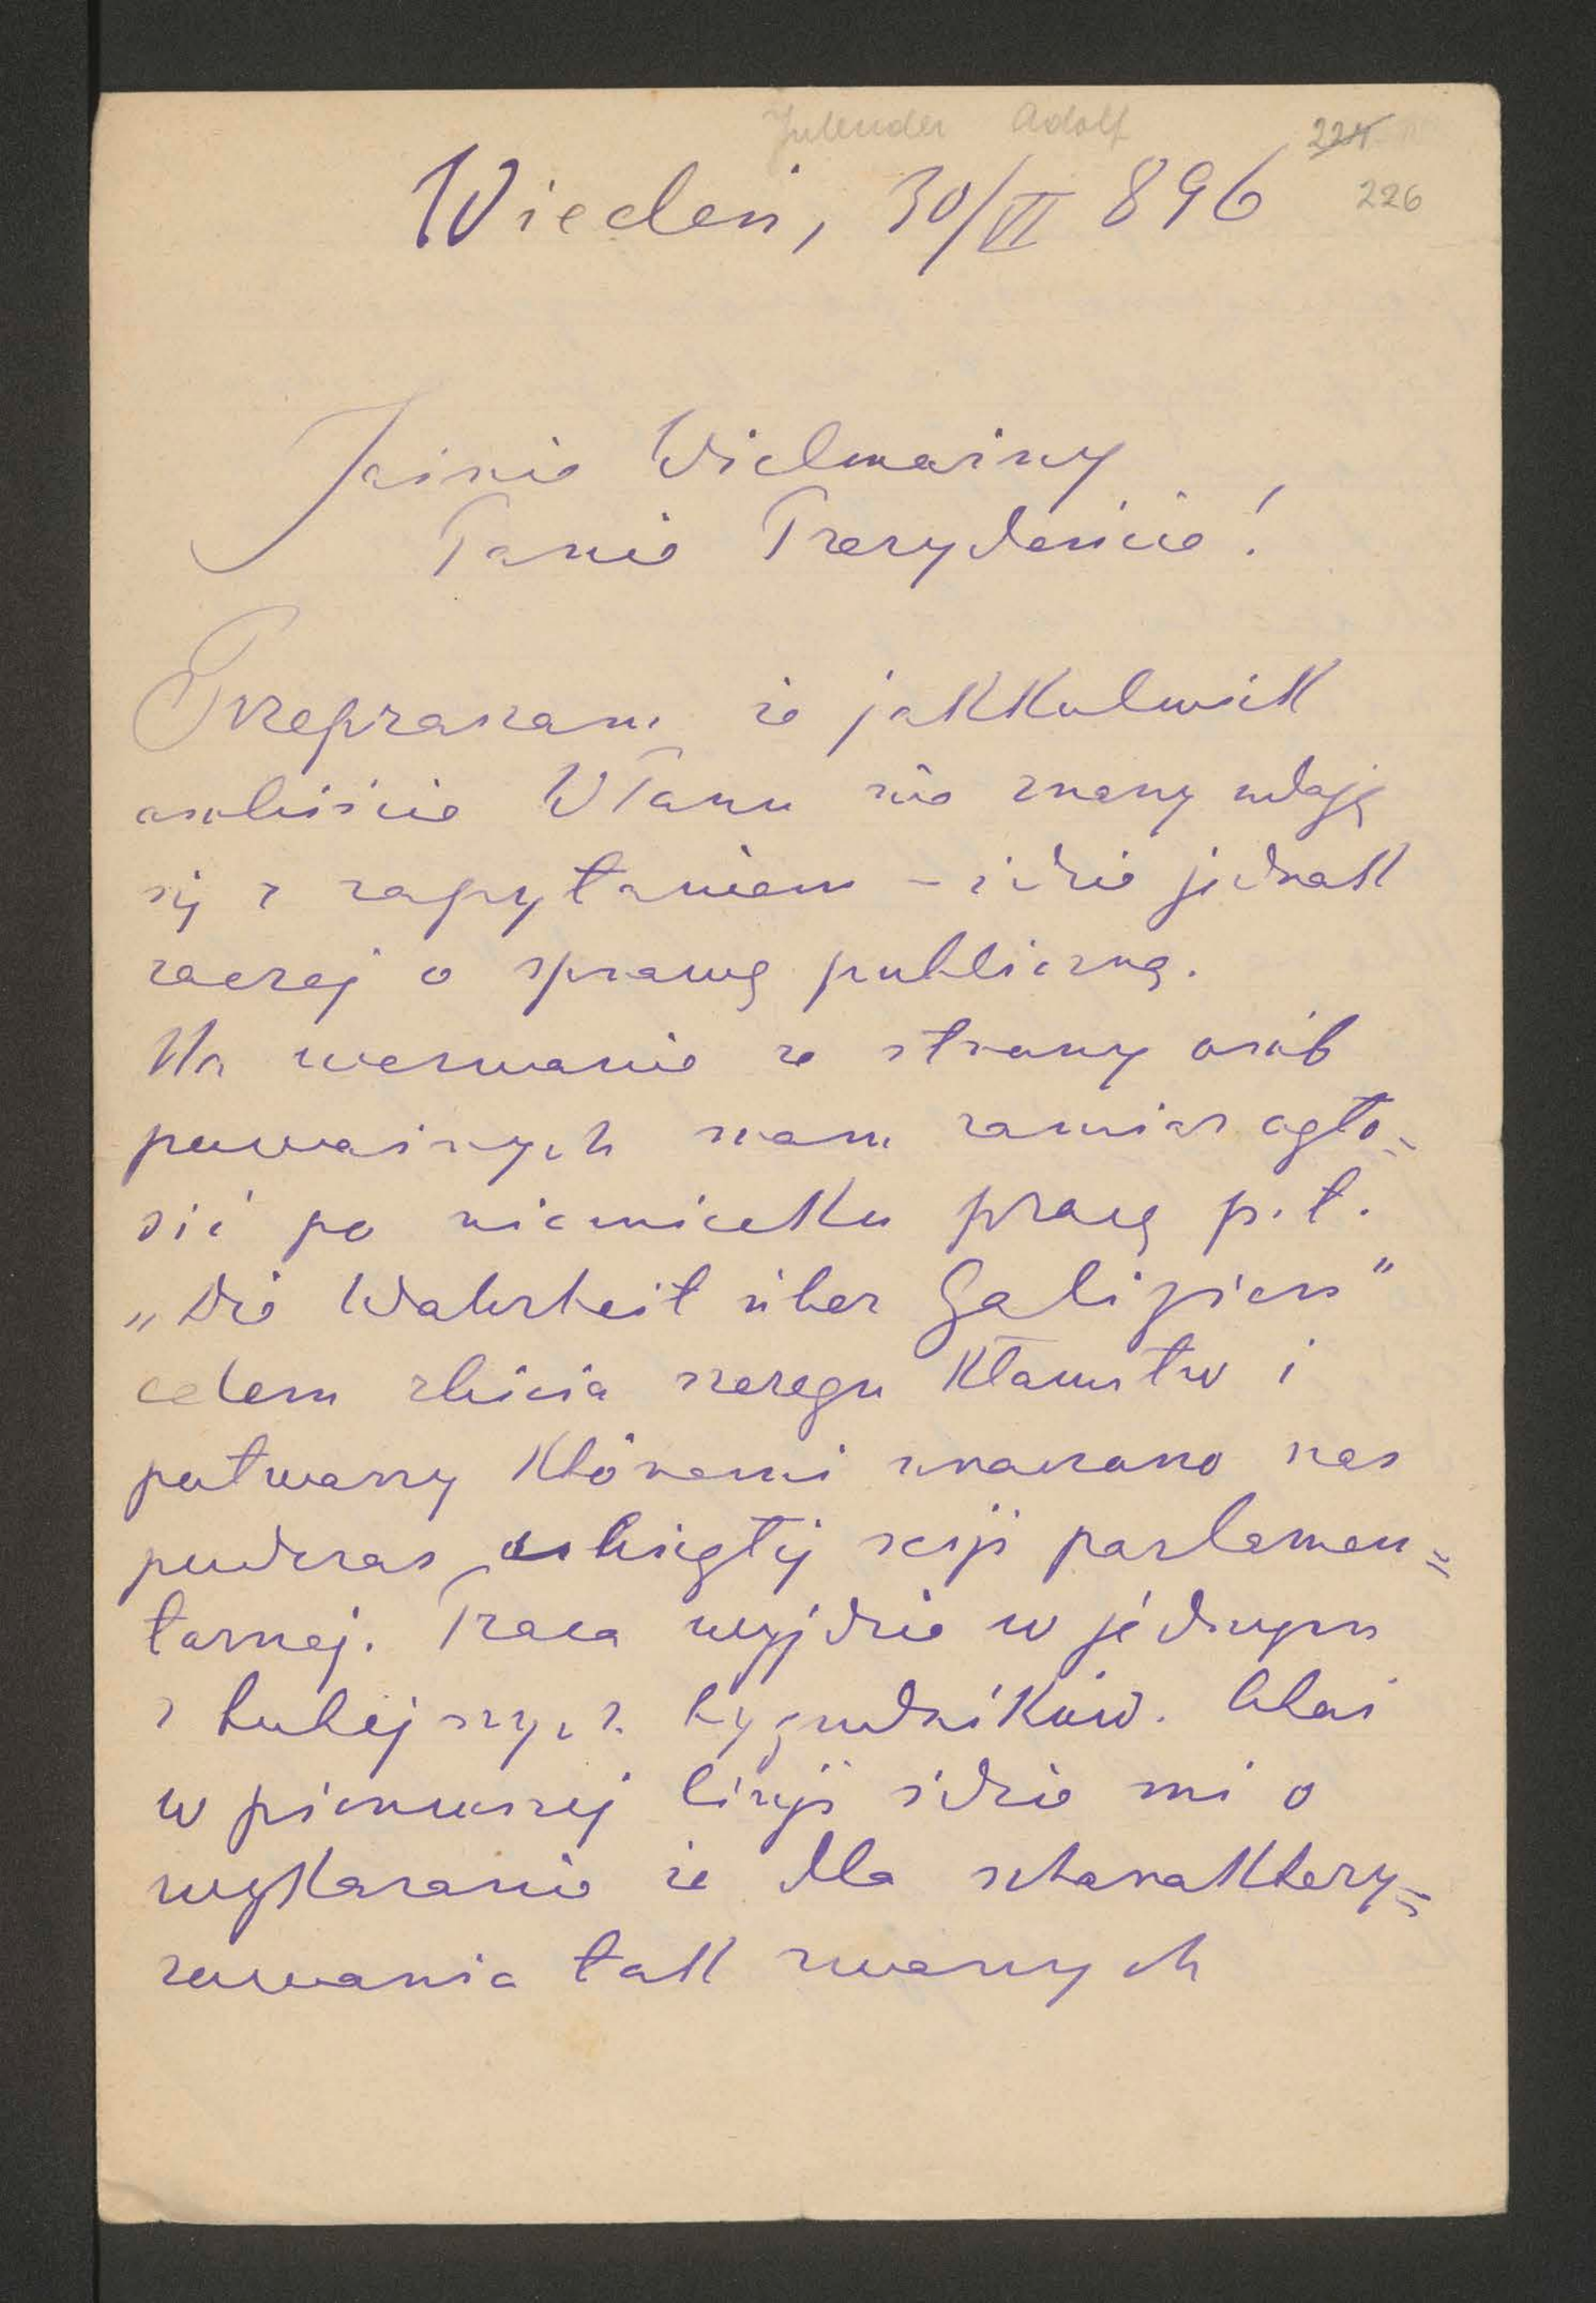 Inlender Adolf
224
226
Wiedeń, 30/VI 896
Jaśnie Wielmożny
Panie Prezydencie!
Przepraszam że jakkolwiek
osobiście WPanu nie znany udaję
się z zapytaniem – idzie jednak
raczej o sprawę publiczną.
Na wezwanie ze strony osób
poważnych mam zamiar ogło=
sić po niemiecku pracę p. t.
„Die Wahrheit über Galizien"
celem zbicia szeregu kłamstw i
potwarzy któremi nas
podczas ubiegłej sesji parlamen=
tarnej. Praca wyjdzie w jednym
z tutejszych tygodników. Otóż
w pierwszej linji idzie mi o
wykazanie że dla scharaktery=
zowania tak zwanych